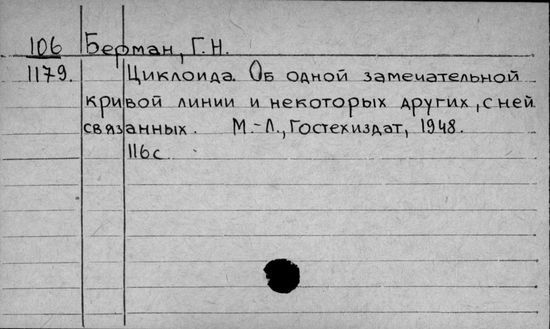 106 Берман, Г.Н.
1179. Циклоида. Об одной замечательной
кривой линии и некоторых других, с ней
связанных. М.-Л., Гостехиздат, 1948.
116с.